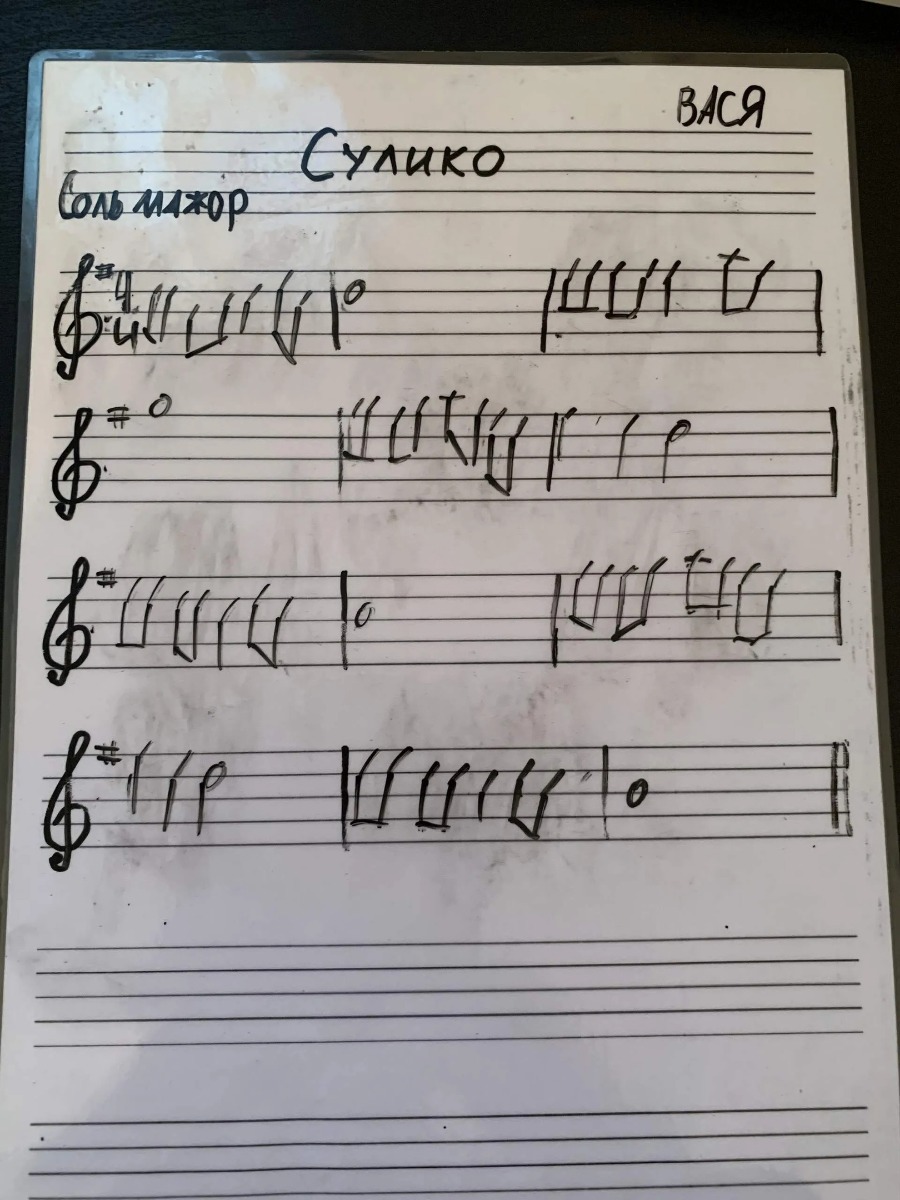 ВАСЯ
Сулико
Соль мажор
4
4